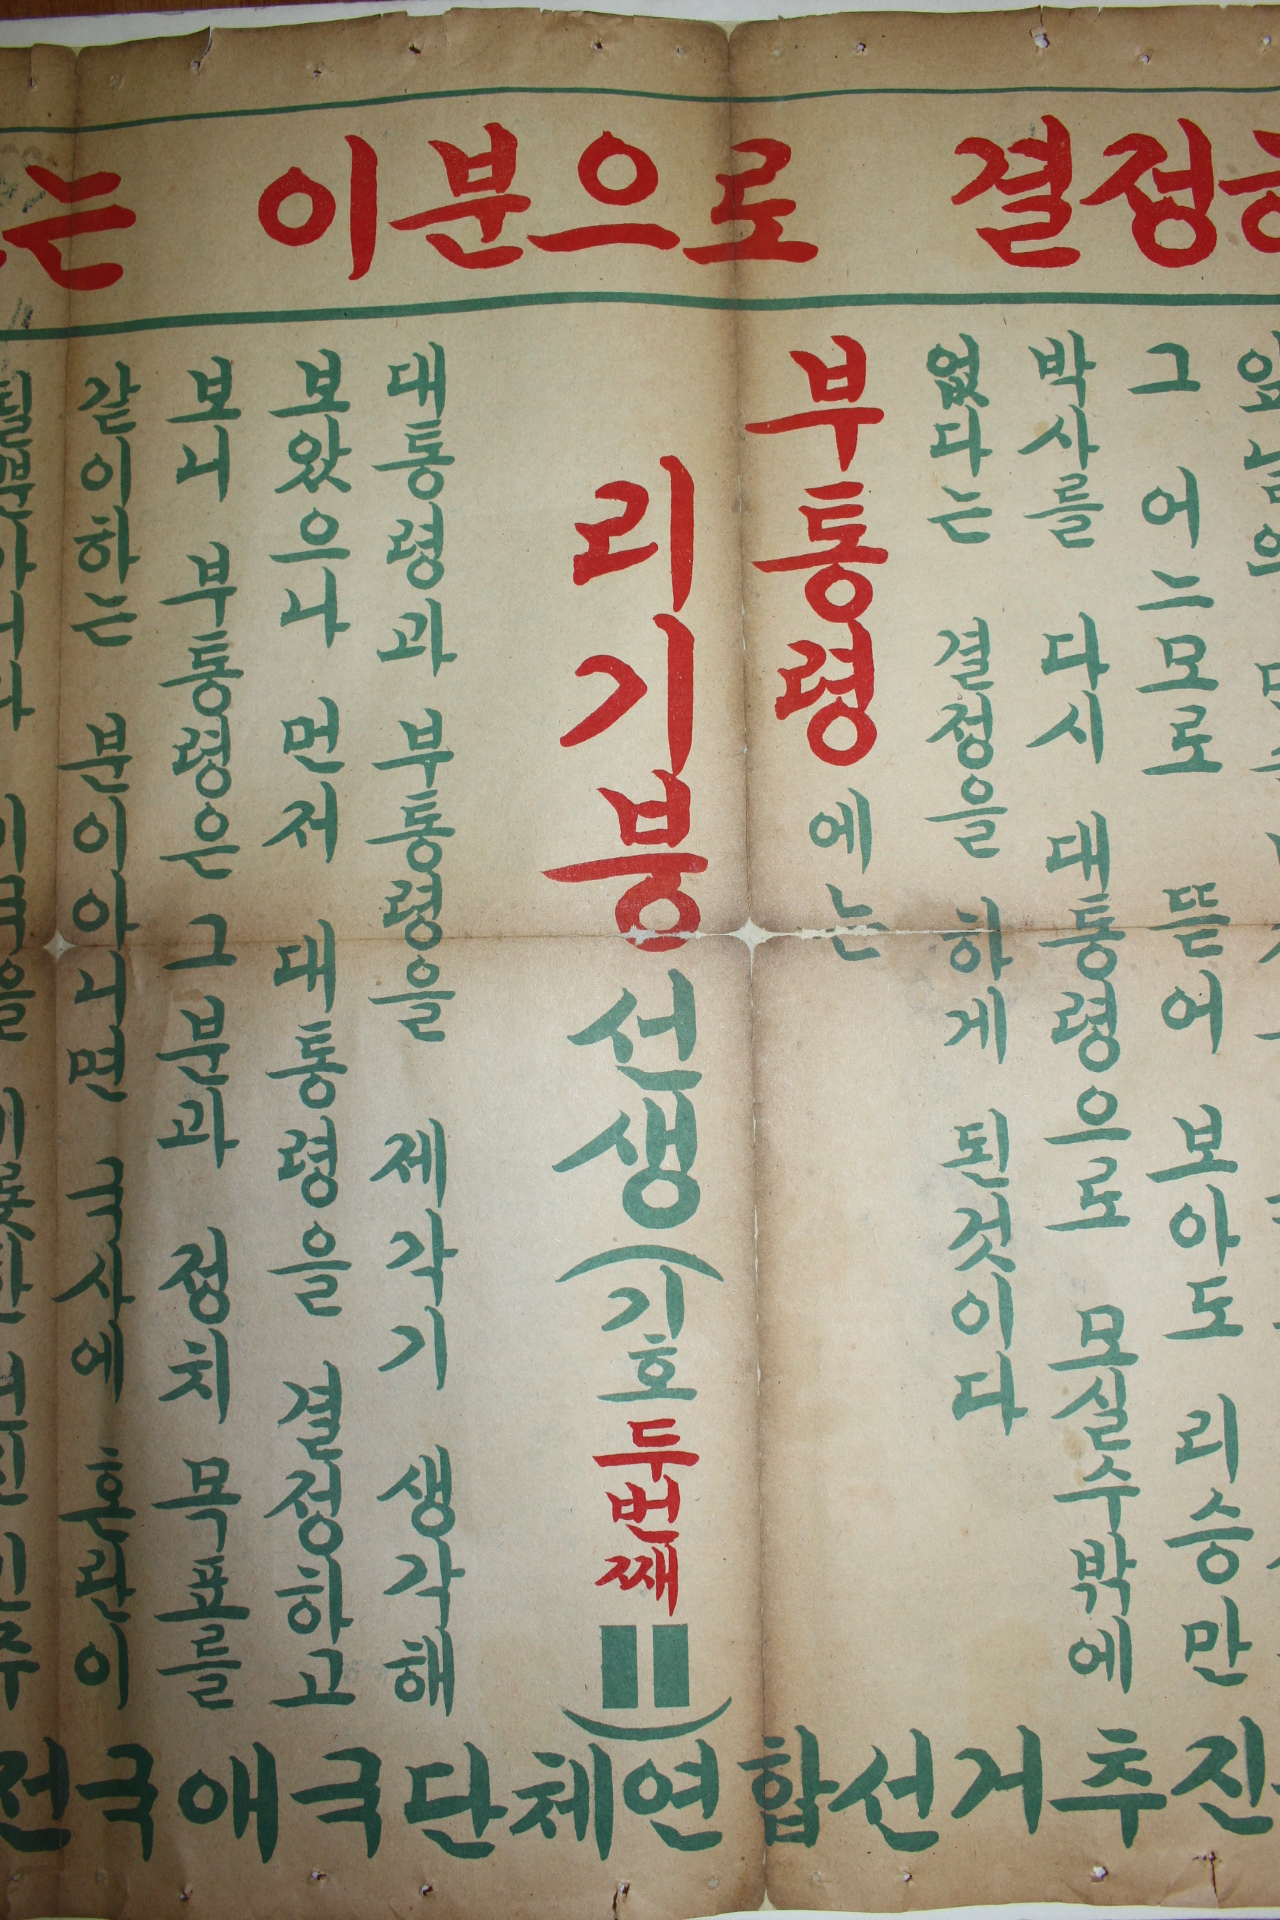 는 이분으로 결정하
그 어느모로 뜯어 보아도 리승만
박사를 다시 대통령으로 모실수밖에
없다는 결정을 하게 된것이다
부통령에는
리기붕선생(기호두번째 II)
대통령과 부통령을 제각기 생각해
보았으나 먼저 대통령을 결정하고
보니 부통령은 그분과 정치 목표를
같이하는 분이아니면 국사에 혼란이
전국애국단체연합선거추진